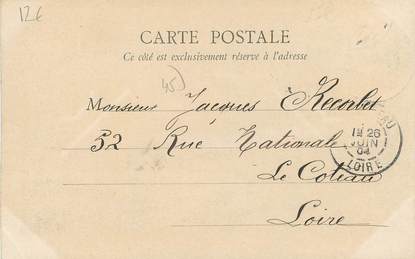 12€
CARTE POSTALE
Ce côté est exclusivement réservé à l'adresse
45
Monsieur Jacques Recorbet
52 Rue Nationale
Le Coteau
Loire
26
JUIN
04
LOIRE